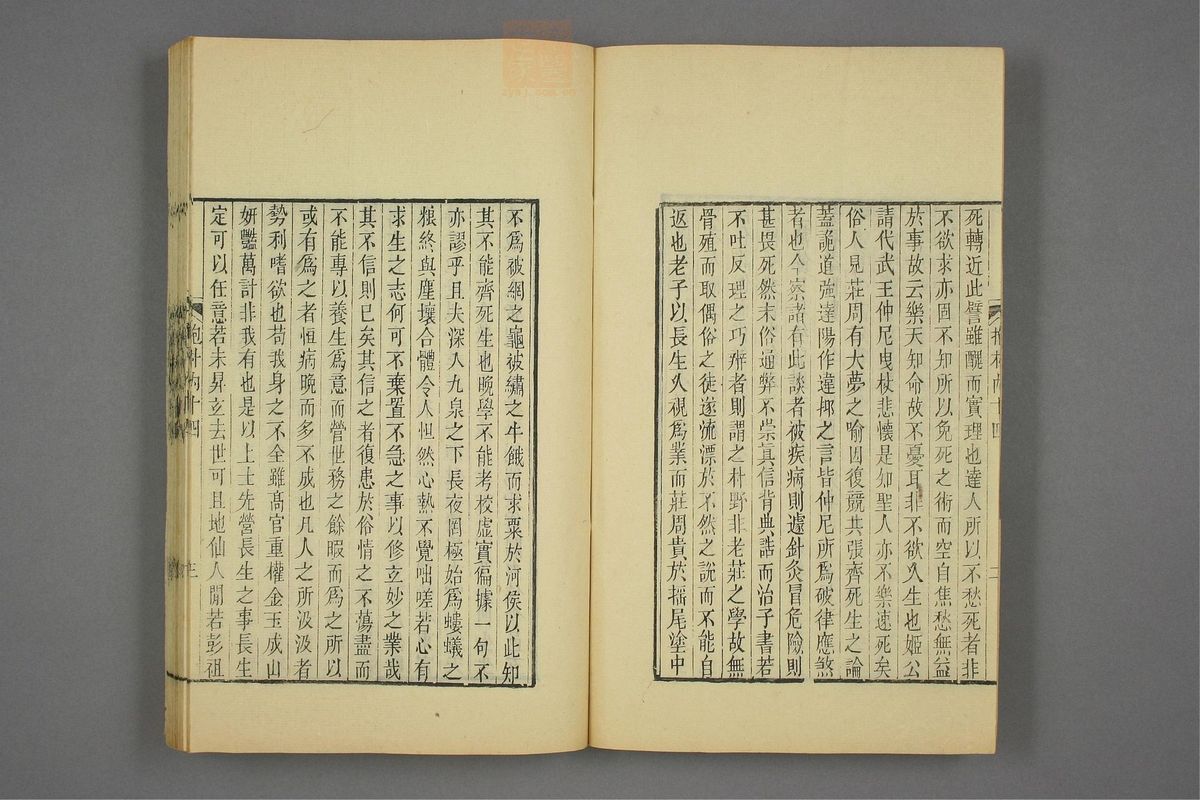 死轉近此譬雖醜而實理也達人所以不愁死者非
不欲求亦固不知所以免死之術而空自焦愁無益
於事故云樂天知命故不憂耳非不欲久生也姬公
請代武王仲尼曳杖悲懷是知聖人亦不樂速死矣
俗人見莊周有大夢之喻因復競共張齊死生之論
蓋詭道強達陽作違抑之言皆仲尼所爲破律應煞
者也今察諸有此談者被疾病則遽針灸冒危險則
甚畏死然末俗通弊不崇眞信背典誥而治子書若
不吐反理之巧辨者則謂之朴野非老莊之學故無
骨殖而取偶俗之徒遂流漂於不然之說而不能自
返也老子以長生久視爲業而莊周貴於搖尾塗中
抱朴內十四
二
不爲被網之龜被繡之牛餓而求粟於河侯以此知
其不能齊死生也晚學不能考校虛實偏據一句不
亦謬乎且夫深入九泉之下長夜罔極始爲螻蟻之
糧終與塵壤合體令人怛然心熱不覺咄嗟若心有
求生之志何可不棄置不急之事以修立妙之業哉
其不信則已矣其信之者復患於俗情之不蕩盡而
不能專以養生爲意而營世務之餘暇而爲之所以
或有爲之者恒病晚而多不成也凡人之所汲汲者
勢利嗜欲也苟我身之不全雖高官重權金玉成山
妍豔萬計非我有也是以上士先營長生之事長生
定可以任意若未昇立去世可且地仙人閒若彭祖
抱朴內十四
三